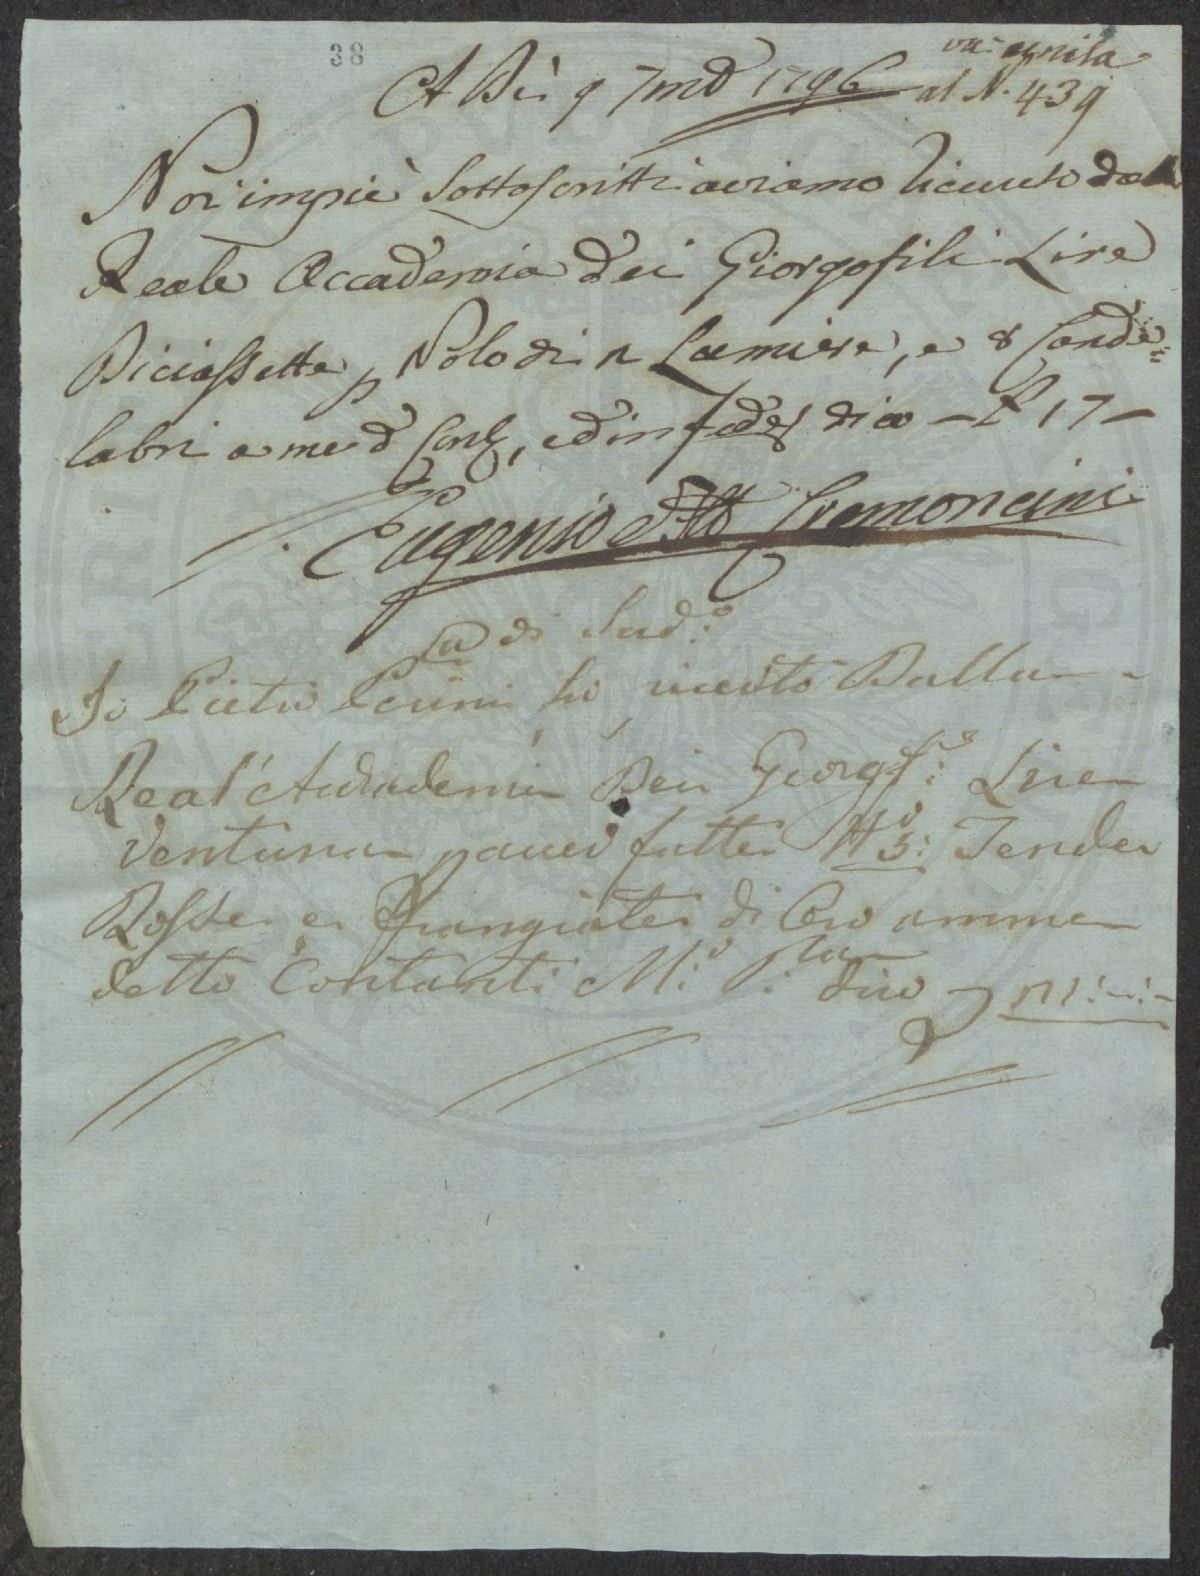 38
A Dì 9 7mb 1796
al N. 439
Noi impiè Sottoscritti aviamo riceuto dalla
Reale Accademia dei Giorgofili Lire
Diciassette p Nolo di n Lumiere, e 8 Cande=
labri a me d Cont, ed in fede dico - L 17 -
Eugenio e Flli Cremoncini
A di Sud.o
Io Pietro Pierini ho riceuto Dalla
Real' Accademia Dei Georgf: Lire
Ventuna p auer fatte No 3: Tende
Rosse e Frangiate di Oro
detto Contanti M:o P:a dico